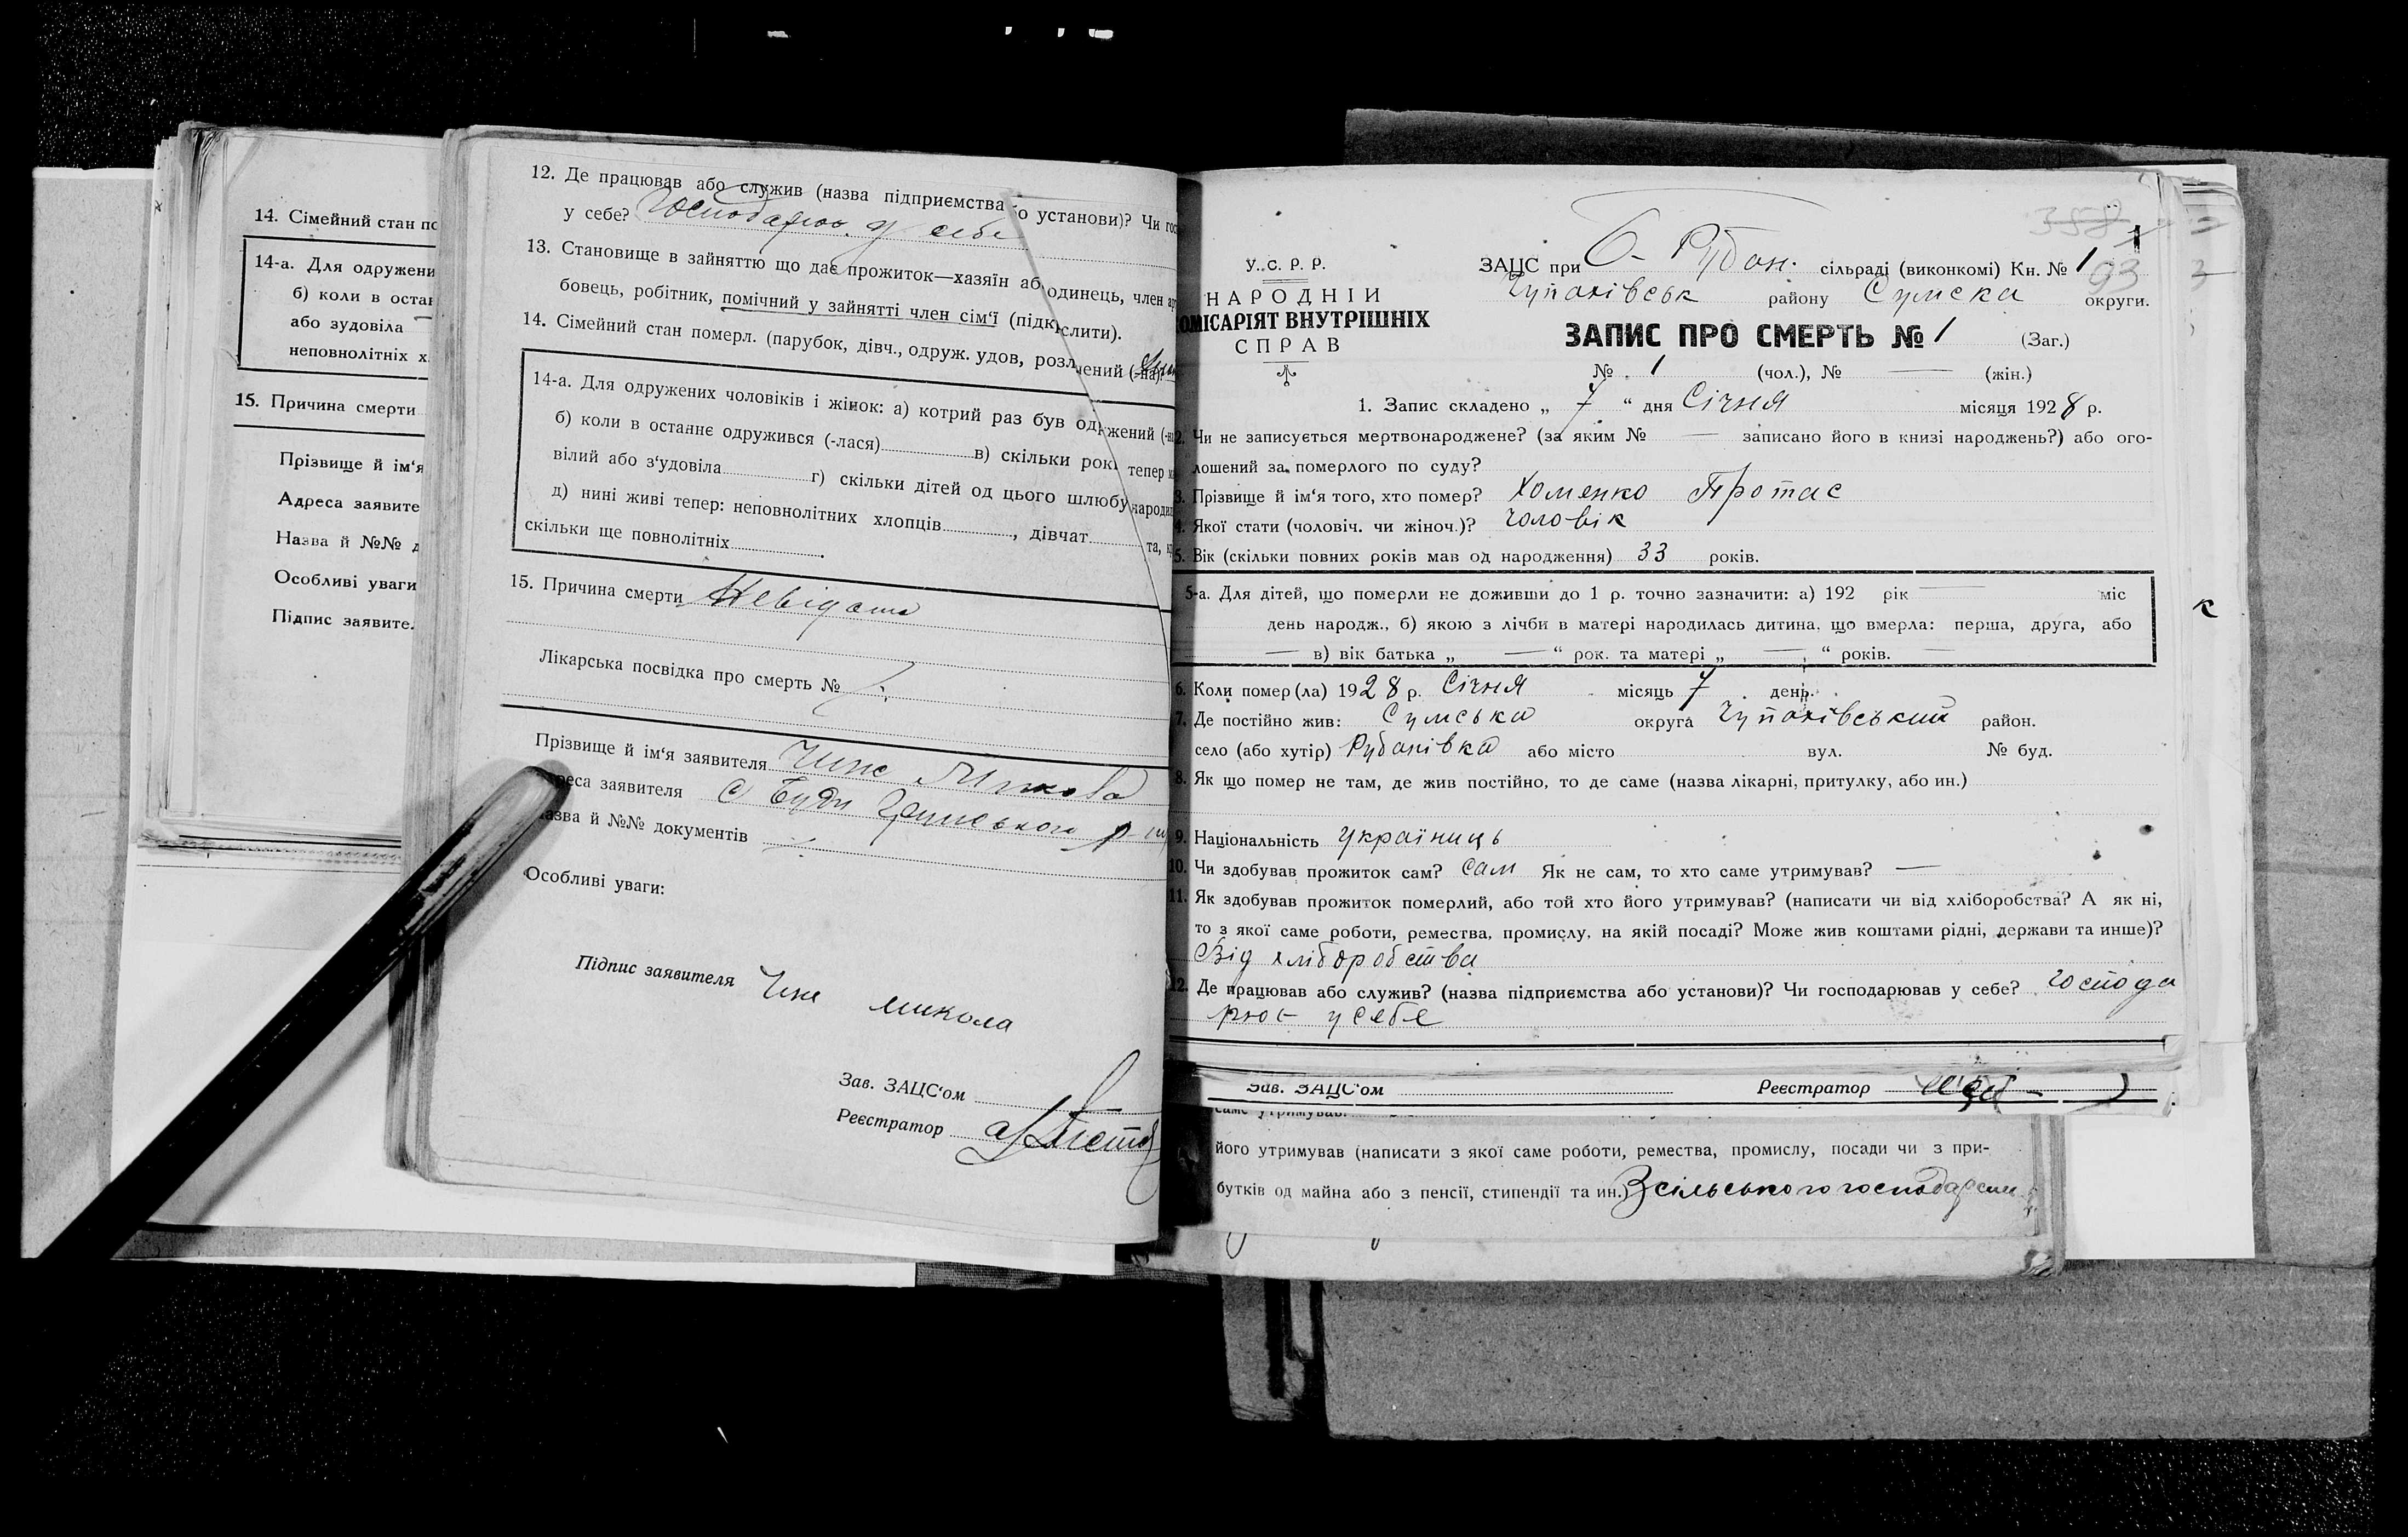 14. Сімейний стан по
14-а. Для одружени
б) коли в остан
або зудовіла
неповнолітніх х
15. Причина смерти
Прізвище й ім'я
Адреса заявите
Назва й №№ д
Особливі уваги
Підпис заявите.
12. Де працював або служив (назва підприємства о установи)? Чи гос
у себе? Господарюв. у себе
13. Становище в зайняттю що дає прожиток—хазяїн аб одинець, член ар
бовець, робітник, помічний у зайнятті член сім'ї (підкреслити).
14. Сімейний стан померл. (парубок, дівч., одруж. удов, розлучений (-на)?
14-а. Для одружених чоловіків і жінок: а) котрий раз був одружений (-на
б) коли в останнє одружився (-лася) в) скільки рокі тепер
вілий або з'удовіла г) скільки дітей од цього шлюбу народил
д) нині живі тепер: неповнолітних хлопців, дівчат та,
скільки ще повнолітніх.
15. Причина смерти Невідома
Лікарська посвідка про смерть №
Прізвище й ім'я заявителя Микола
реса заявителя с Буди
азва й №№ документів
Особливі уваги:
Підпис заявителя Микола
Зав. ЗАЦС'ом
Реєстратор
358
У.С.Р.Р.
НАРОДНІЙ
КОМІСАРІЯТ ВНУТРІШНІХ
СПРАВ
ЗАЦС при Б- Рубан. сільраді (виконкомі) Кн. № 1
93
Чупахівськ району Сумска округи.
ЗАПИС ПРО СМЕРТЬ № 1 (Заг.)
№ 1 (чол.), № — (жін.)
1. Запис складено „ 7 “ дня Січня місяця 1928 р.
2. Чи не записується мертвонароджене? (за яким № — записано його в книзі народжень?) або ого-
лошений за померлого по суду?
3. Прізвище й ім'я того, хто помер? Хоменко Протас
4. Якої стати (чоловіч. чи жіноч.)? чоловік
5. Вік (скільки повних років мав од народження) 33 років.
5-а. Для дітей, що померли не доживши до 1 р. точно зазначити: а) 192 рік — міс
день народж., б) якою з лічби в матері народилась дитина, що вмерла: перша, друга, або
— в) вік батька „ — “ рок. та матері „ — “ років. —
к
6. Коли помер(ла) 1928 р. Січня місяць 7 день.
7. Де постійно жив: Сумська округа Чупахівський район.
село (або хутір) Рубанівка або місто вул. № буд.
8. Як що помер не там, де жив постійно, то де саме (назва лікарні, притулку, або ин.)
9. Національність українць
10. Чи здобував прожиток сам? сам Як не сам, то хто саме утримував? —
11. Як здобував прожиток померлий, або той хто його утримував? (написати чи від хліборобства? А як ні,
то з якої саме роботи, ремества, промислу, на якій посаді? Може жив коштами рідні, держави та инше)?
Від хліборобства
12. Де працював або служив? (назва підприємства або установи)? Чи господарював у себе? господа
рює у себе
Зав. ЗАЦС'ом Реєстратор
саме утримував.
його утримував (написати з якої саме роботи, ремества, промислу, посади чи з при-
бутків од майна або з пенсії, стипендії та ин.) З сільського господарства